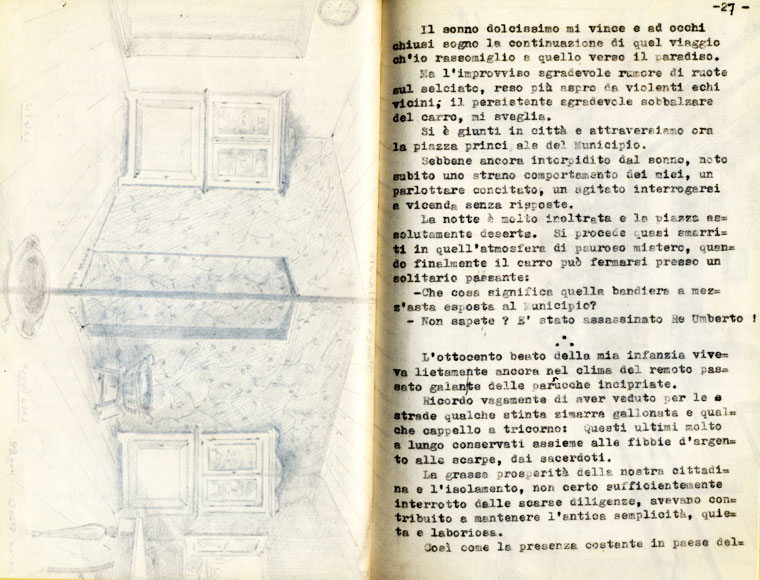 -27-
Il sonno dolcissimo mi vince e ad occhi
chiusi sogno la continuazione di quel viaggio
ch'io rassomiglio a quello verso il paradiso.
Ma l'improvviso sgradevole rumore di ruote
sul selciato, reso più aspro da violenti echi
vicini; il persistente sgradevole sobbalzare
del carro, mi sveglia.
Si è giunti in città e attraversiamo ora
la piazza principale del Municipio.
Sebbene ancora intorpidito dal sonno, noto
subito uno strano comportamento dei miei, un
parlottare concitato, un agitato interrogarsi
a vicenda senza risposte.
La notte è molto inoltrata e la piazza as=
solutamente deserta. Si procede quasi smarri=
ti in quell'atmosfera di pauroso mistero, quan=
do finalmente il carro può fermarsi presso un
solitario passante:
-Che cosa significa quella bandiera a mez=
z'asta esposta al Municipio?
- Non sapete ? E' stato assassinato Re Umberto !
L'ottocento beato della mia infanzia vive=
va lietamente ancora nel clima del remoto pas=
sato galante delle parucche incipriate.
Ricordo vagamente di aver veduto per le s
strade qualche stinta zimarra gallonata e qual=
che cappello a tricorno: Questi ultimi molto
a lungo conservati assieme alle fibbie d'argen=
to alle scarpe, dai sacerdoti.
La grassa prosperità della nostra cittadi=
na e l'isolamento, non certo sufficientemente
interrotto dalle scarse diligenze, avevano con=
tribuito a mantenere l'antica semplicità, quie=
ta e laboriosa.
Così come la presenza costante in paese del=